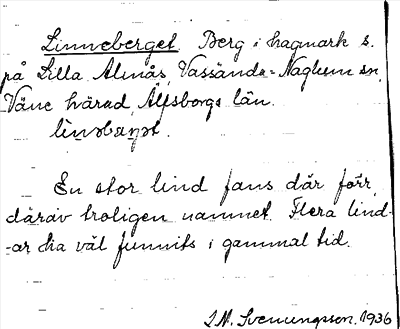 Linneberget Berg i hagmark s.
på Lilla Almås, Vassända-Naglum sn,
Väne härad, Älfsborgs län.
En stor lind fans där förr,
därav troligen namnet. Flera lind-
-ar ha väl funnits i gammal tid.
J.N. Svenungsson. 1936